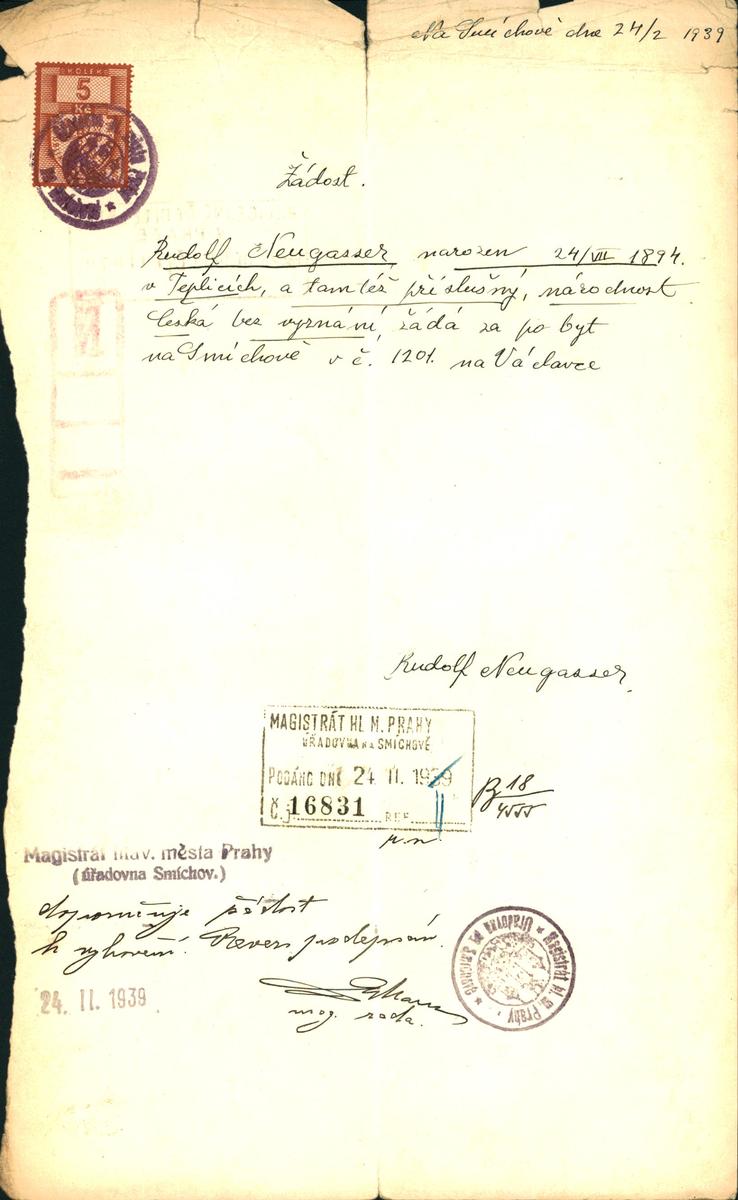 Na Smíchově dne 24/2 1939
KOLEK
5
Kč
Žádost.
Rudolf Neugasser narozen 24/VII 1894.
v Teplicích, a tamtéž příslušný, národnost
česká bez vyznání, žádá za pobyt
na Smíchově v č. 1201. na Václavce
Rudolf Neugasser.
MAGISTRÁT HL. M. PRAHY
ÚŘADOVNA NA SMÍCHOVĚ
PODÁNO DNE 24. II. 1939
Č.j. 16831 REF.
18
Magistrát hlav. města Prahy
(úřadovna Smíchov.)
doporučuje žádost
k vyhovění. Revers podepsán.
24. II. 1939
mag. rada.
Magistrát hl. m. Prahy ★ Úřadovna na Smíchově ★